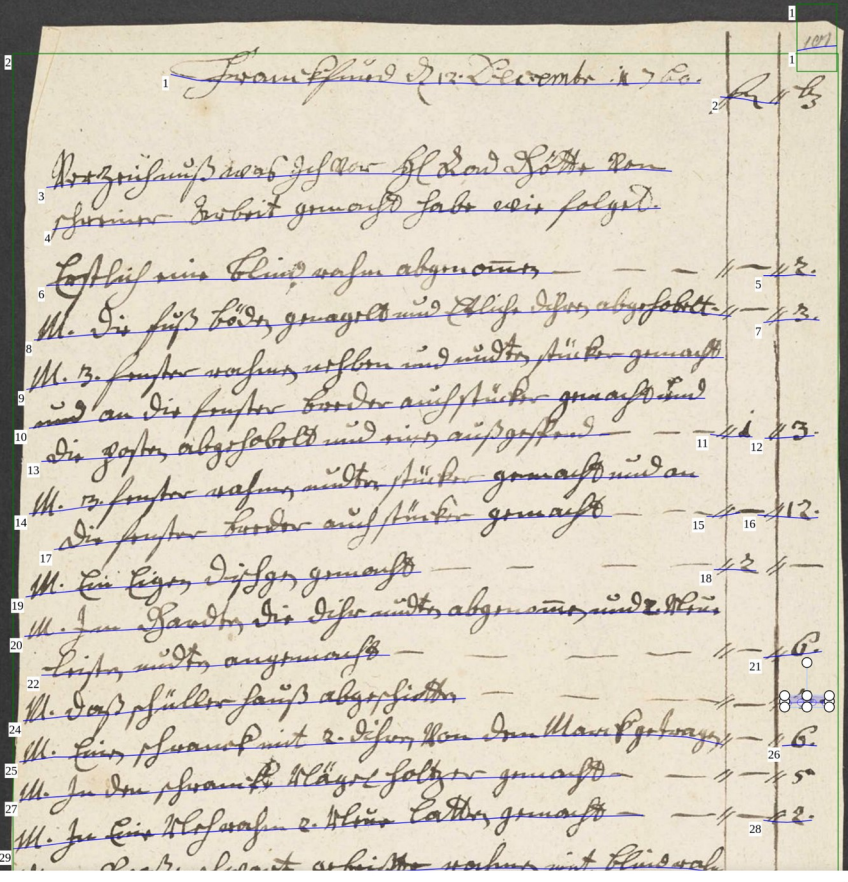 107
Franckfurd d 12. Decembr. 1760.
fl // xr
Verzeichnuß was Ich vor Hl Rad Göthe von
schreiner Arbeit gemacht habe wie folget.
Erstlich eine blind rahm abgenommen — — — — // — // 2.
M. die fuß böden genagelt und Etliche dihren abgehobelt - // — // 3.
M. 3. fenster rahmen nehben und undten stücker gemacht
und an die fenster breder auch stücker gemacht und
die posten abgehobelt und einen außgespend — — — // 1 // 3.
M. 3. fenster rahmen undten stücker gemacht und an
die fenster breder auch stücker gemacht — — — // — // 12.
M. Ein Eigen dischgen gemacht — — — — // 2 // —
M. Im garden die dihr undten abgenommen und 2. Neue
leisten undten angemacht — — — — // — // 6.
M. daß schüller hauß — — — // — //
M. Einen schranck mit 2. dihren von dem Marck getragen // — // 6.
M. In den schranck Nägel holtzer gemacht — — // — // 5
M. In Eine rahm 2. Neue latten gemacht — — // — // 2.
schwart gebeitzte rahmen mit blind rahm